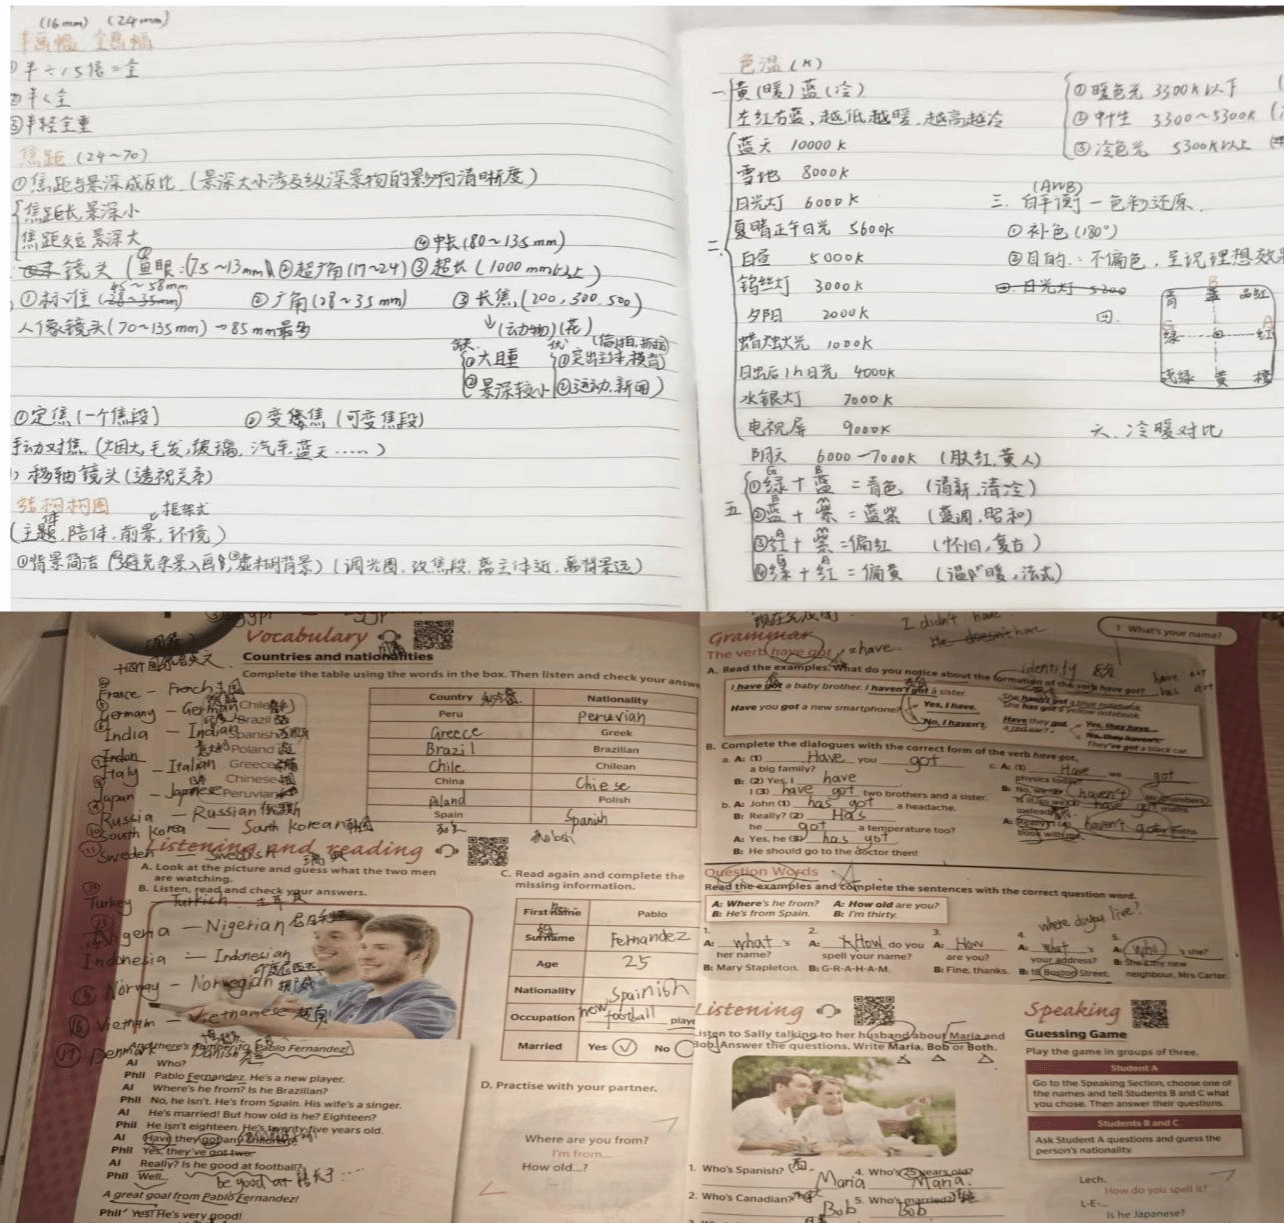 (16mm) (24mm)
半画幅 全画幅
①半÷1.5倍=全
②半<全
③半轻全重
焦距(24~70)
①焦距与景深成反比(景深大小涉及纵深景物的影响清晰度)
焦距长,景深小
焦距短,景深大
④中长(80~135mm)
镜头(①鱼眼:(7.5~13mm)②超广角(17~24)③超长(1000mm以上)
45~58mm
①标准(28~35mm) ②广角(28~35mm) ③长焦(200,300,500)
人像镜头(70~135mm)→85mm最多
↓(动物)(花)
缺 优(偏甜,抓拍)
①大且重 ①突出主体
②景深较小 ②运动.新闻)
①定焦(一个焦段) ②变焦(可变焦段)
手动对焦(烟火,毛发,玻璃,汽车,蓝天……)
移轴镜头(透视关系)
结构构图 框架式
(主题,陪体,前景,环境)
①背景简洁(避免杂景入画,虚糊背景)(调光圈,改焦段,离主体近,离背景远)
色温(K)
一 黄(暖)蓝(冷)
左红右蓝,越低越暖,越高越冷
①暖色光 3300K以下
②中性 3300~5300K
③冷色光 5300K以上
二 蓝天 10000K
雪地 8000K
日光灯 6000K
夏晴正午日光 5600K
白昼 5000K
钨丝灯 3000K
夕阳 2000K
蜡烛火光 1000K
日出后1h日光 4000K
水银灯 7000K
电视屏 9000K
阴天 6000-7000K (肤红.黄人)
(AWB)
三.白平衡一色彩还原.
①补色(180°)
②目的:不偏色,呈现理想效果
四.日光灯 5200
四.
B
青 蓝 品红
G 绿 白 红 A
浅绿 黄 橙
六.冷暖对比
五 ①绿+蓝=青色 (清新.清冷)
②蓝+紫=蓝紫 (蓝调.昭和)
③红+紫=偏红 (怀旧,复古)
④绿+红=偏黄 (温暖,法式)
Vocabulary
Countries and nationalities
Complete the table using the words in the box. Then listen and check your answe
十四个国家名英文
France - French 法国
Germany - German
India - Indian
Italy - Italian
Japan - Japanese
Russia - Russian 俄罗斯
South Korea - South Korean 韩国
Sweden
Turkey - Turkich 土耳其
Nigeria - Nigerian 尼日利亚
Indonesia - Indonesian
Norway - Norwegian 挪威
Vietnam - Vietnamese 越南
Denmark Danish
Chile
Brazil
Spanish
Poland
Greece
Chinese
Peruvian
Country Nationality
Peru Peruvian
Greece Greek
Brazil Brazilian
Chile Chilean
China Chiese
Poland Polish
Spain Spanish
Listening and reading
A. Look at the picture and guess what the two men
are watching.
B. Listen, read and check your answers.
And there's number 10 Pablo Fernandez!
Al Who?
Phil Pablo Fernandez. He's a new player.
Al Where's he from? Is he Brazilian?
Phil No, he isn't. He's from Spain. His wife's a singer.
Al He's married! But how old is he? Eighteen?
Phil He isn't eighteen. He's twenty-five years old.
Al Have they got any children?
Phil Yes, they've got two.
Al Really? Is he good at football?
Phil Well...
be good at 擅长于…
A great goal from Pablo Fernandez!
Phil Yes! He's very good!
C. Read again and complete the
missing information.
First name Pablo
Surname Fernandez
Age 25
Nationality Spainish
Occupation new football playe
Married Yes No
D. Practise with your partner.
Where are you from?
I'm from...
How old...?
...
I didn't have
He doesn't have
1 What's your name?
Grammar
The verb have got =have
A. Read the examples. What do you notice about the formation of the verb have got?
identify
have got
has got
I have got a baby brother. I haven't got a sister.
She hasn't got a blue notebook.
She has got a yellow notebook.
Have you got a new smartphone? Yes, I have.
No, I haven't.
Have they got a red car? Yes, they have.
No, they haven't.
They've got a black car.
B. Complete the dialogues with the correct form of the verb have got.
a. A: (1) Have you got
a big family?
B: (2) Yes, I have
I (3) have got two brothers and a sister.
b. A: John (1) has got a headache.
B: Really? (2) Has
he got a temperature too?
A: Yes, he (3) has got
B: He should go to the doctor then!
c. A: (1) Have we got
physics today?
B: No, we (2) haven't
have got maths
instead.
A: Really? I (4) haven't got my maths
book with me.
Question Words
Read the examples and complete the sentences with the correct question word.
A: Where's he from? A: How old are you?
B: He's from Spain. B: I'm thirty.
where do you live?
1.
A: what 's
her name?
B: Mary Stapleton.
2.
A: How do you
spell your name?
B: G-R-A-H-A-M.
3.
A: How
are you?
B: Fine, thanks.
4.
A: what 's
your address?
B: 18 Boston Street.
5.
A: Who 's she?
B: She's my new
neighbour, Mrs Carter.
Listening
Listen to Sally talking to her husband about Maria and
Bob. Answer the questions. Write Maria, Bob or Both.
1. Who's Spanish? Maria
4. Who's 25 years old? Maria.
2. Who's Canadian? Bob
5. Who's married? Bob
Speaking
Guessing Game
Play the game in groups of three.
Student A
Go to the Speaking Section, choose one of
the names and tell Students B and C what
you chose. Then answer their questions.
Students B and C
Ask Student A questions and guess the
person's nationality.
Lech.
How do you spell it?
L-E-...
Is he Japanese?